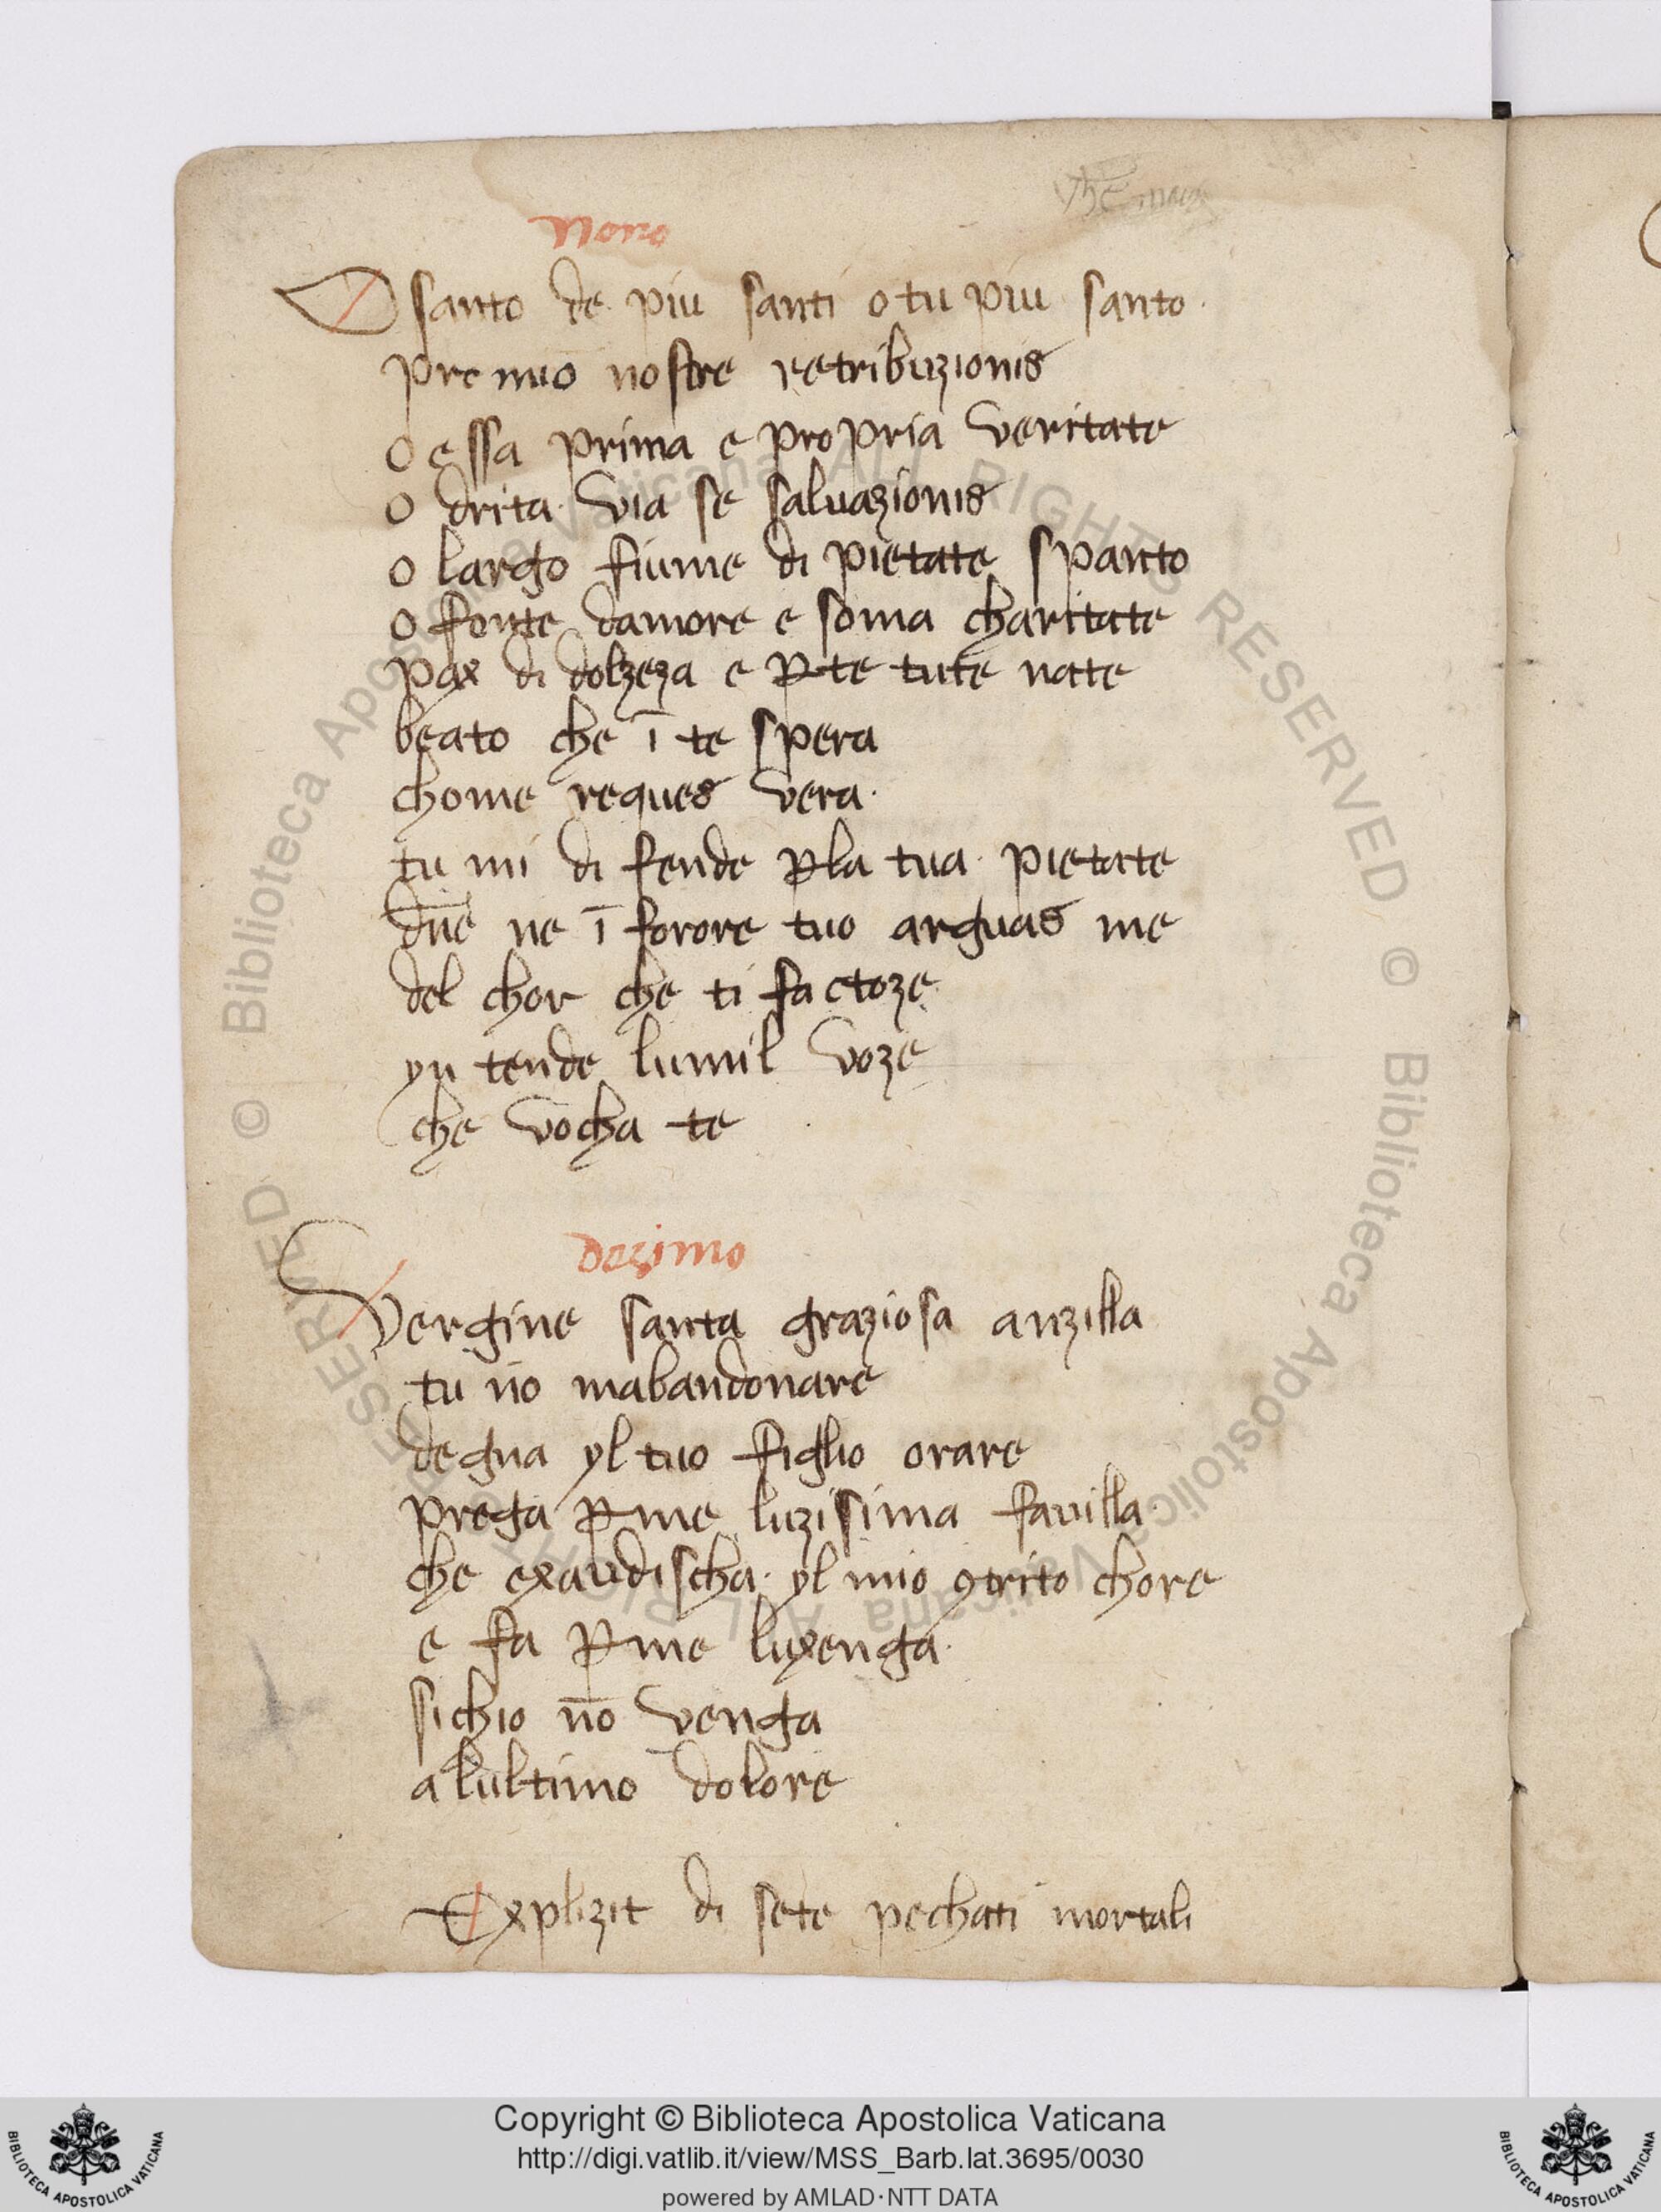 nono
O santo de piu santi o tu piu santo
premio nostre retribuzionis
o essa prima e propria veritate
o drita via se saluazionis
o largo fiume di pietate spanto
o fonte damore e soma charitate
pax di dolzeza e ꝑ te tute nate
beato che ī te spera
chome reques vera
tu mi di fende ꝑ la tua pietate
dn̄e ne ī forore tuo arguas me
del chor che ti factoze
yn tende lumil voze
che vocha te
dezimo
Vergine santa graziosa anzilla
tu nō mabandonare
degna yl tuo figlio orare
prega ꝑ me luzisima fauilla
che exaudischa yl mio ꝯtrito chore
e fa ꝑ me luxenga
sichio nō venga
alultimo dolore
Explizit di sete pechati mortali
Copyright © Biblioteca Apostolica Vaticana
http://digi.vatlib.it/view/MSS_Barb.lat.3695/0030
powered by AMLAD·NTT DATA
BIBLIOTECA APOSTOLICA VATICANA
BIBLIOTECA APOSTOLICA VATICANA
© Biblioteca Apostolica Vaticana ALL RIGHTS RESERVED © Biblioteca Apostolica Vaticana ALL RIGHTS RESERVED